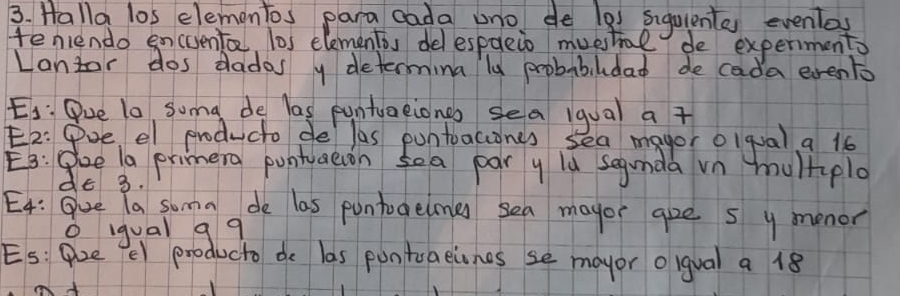 3. Halla los elementos para cada uno de los siguientes eventos
teniendo en cuenta los elementos del espacio muestral de experimento
Lanzar dos dados y determina la probabilidad de cada evento
E1: Que la suma de las puntuaciones sea igual a 7
E2: Que el producto de las puntuaciones sea mayor o igual a 16
E3: Que la primera puntuacion sea par y la segunda un multiplo
de 3.
E4: Que la suma de las puntuaciones sea mayor que 5 y menor
o igual a 9
E5: Que el producto de las puntuaciones se mayor o igual a 18